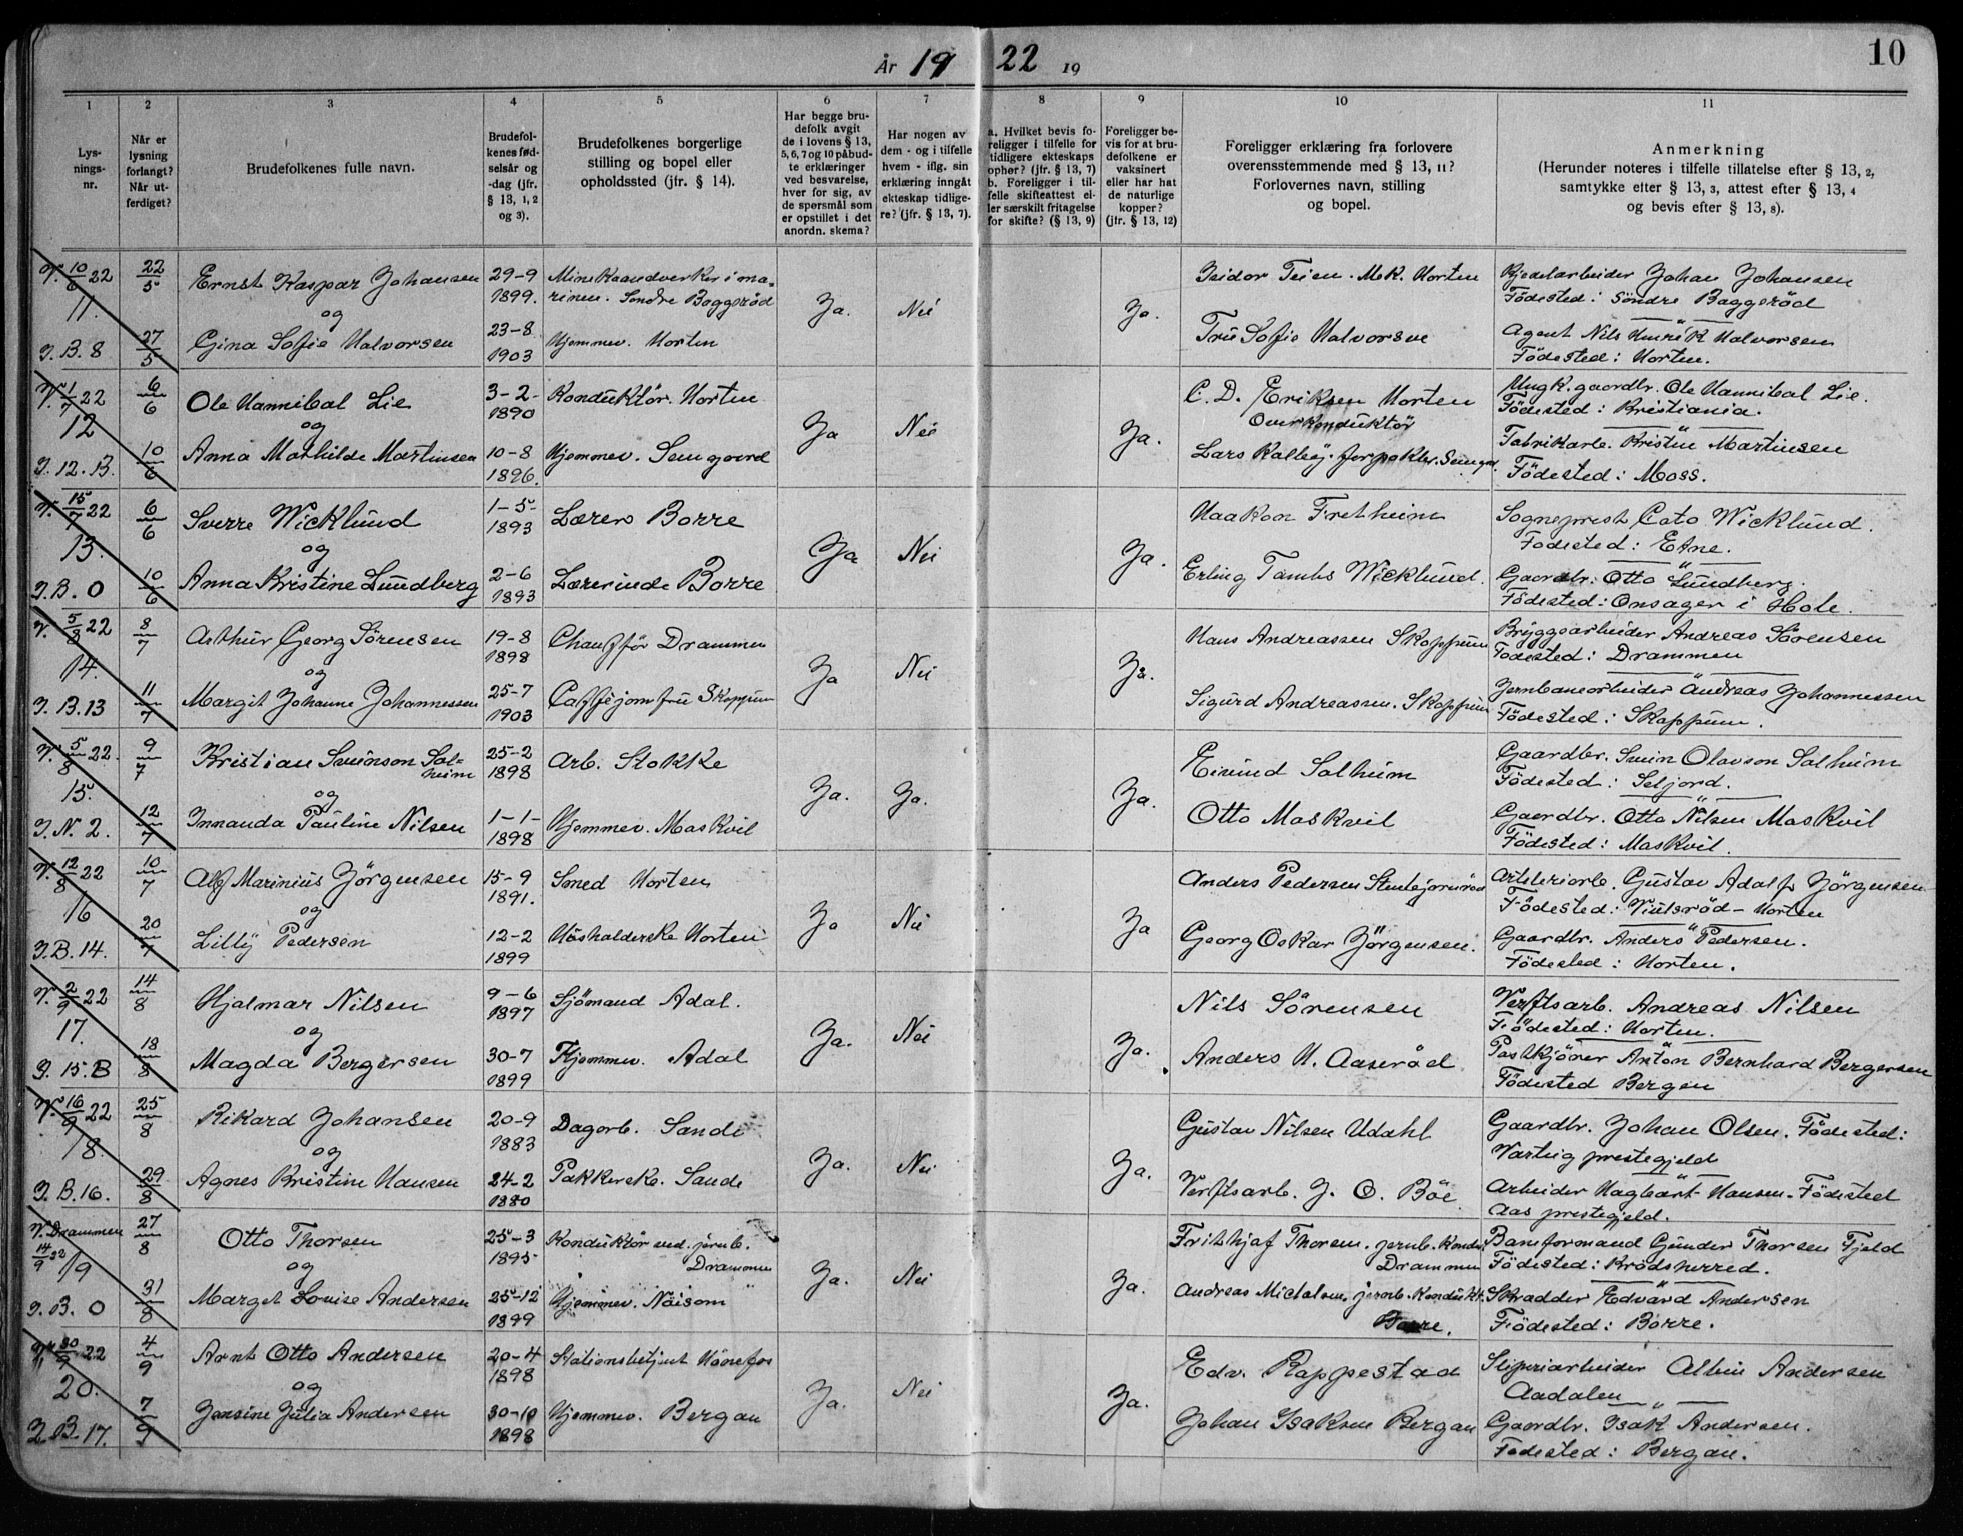 År 19 22 19
10
1 2 3 4 5 6 7 8 9 10 11
Lys-
nings-
nr.
Når er
lysning
forlangt?
Når ut-
ferdiget?
Brudefolkenes fulle navn.
Brudefol-
kenes fød-
selsår og
-dag (jfr.
§ 13, 1, 2
og 3).
Brudefolkenes borgerlige
stilling og bopel eller
opholdssted (jfr. § 14).
Har begge bru-
defolk avgit
de i lovens § 13,
5, 6, 7 og 10 påbud-
te erklæringer
ved besvarelse,
hver for sig, av
de spørsmål som
er opstillet i det
anordn. skema?
Har nogen av
dem - og i tilfelle
hvem - iflg. sin
erklæring inngåt
ekteskap tidlige-
re? (jfr. § 13, 7).
a. Hvilket bevis fo-
religger i tilfelle for
tidligere ekteskaps
ophør? (jfr. § 13, 7)
b. Foreligger i til-
felle skifteattest el-
ler særskilt fritagelse
for skifte? (§ 13, 9)
Foreligger be-
vis for at bru-
defolkene er
vaksinert
eller har hat
de naturlige
kopper?
(jfr. § 13, 12)
Foreligger erklæring fra forlovere
overensstemmende med § 13, 11?
Forlovernes navn, stilling
og bopel.
Anmerkning
(Herunder noteres i tilfelle tillatelse efter § 13, 2,
samtykke efter § 13, 3, attest efter § 13, 4
og bevis efter § 13, 8).
V. 10/6 22 22/5 Ernst Kaspar Johansen 29-9 Minekaandverker i ma- Isidor Teien. Mek. Horten Kjedelarbeider Johan Johansen
1899. rinen. Sondre Baggerød Födested: Söndre Baggeröd
11. og Ja. Nei Ja.
J.B. 8 27/5 Gina Sofie Halvorsen 23-8 Hjemmev. Horten Fru Sofie Halvorsen Agent Nils Henrik Halvorsen
1903 Födested: Horten.
V. 1/7 22 6/6 Ole Hannibal Lie 3-2- Konduktör. Horten C. D. Eriksen Horten Ungk. gaardbr. Ole Hannibal Lie.
1890 Overkonduktör Födested: Kristiania.
12 og Ja Nei Ja.
J. 12. B. 10/6 Anna Mathilde Martinsen 10-8 Hjemmev. Semgaard Lars Kalleg. forpakter. Fabrikarb. Kristen Martinsen
1896. Födested: Moss.
V. 15/7 22 6/6 Sverre Wicklund 1-5- Lærer Borre Haakon Fretheim Sogneprest Cato Wicklund.
1893 Födested: Etne.
13. og Ja Nei Ja.
J.B. 0 10/6 Anna Kristine Lundberg 2-6 Lærerinde Borre Erling Tambs Wicklund. Gaardbr. Otto Lundberg.
1893 Födested: Onsager i Hole.
V. 5/8 22 8/7 Arthur Georg Sørensen 19-8 Chauffør Drammen Hans Andreassen Skoppum Bryggearbeider Andreas Sørensen
1898 Födested: Drammen
14. og Ja Nei Ja.
J.B. 13 11/7 Margit Johanne Johannessen 25-7 Caffejomfru Skoppum Sigurd Andreassen. Skoppum Jernbanearbeider Andreas Johannessen
1903 Födested: Skoppum.
V. 5/8 22. 9/7 Kristian Sveinson Sol= 25-2 Arb. Stokke Eivind Solheim Gaardbr. Svein Olavson Solheim
heim 1898 Födested: Seljord.
15. og Ja. Ja. Ja.
J.N. 2. 12/7 Innanda Pauline Nilsen 1-1- Hjemmev. Maskvil Otto Maskvil Gaardbr. Otto Nilsen Maskvil
1898 Födested: Maskvil.
V. 12/8 22 10/7 Alf Marinius Jörgensen 15-9 Smed Horten Anders Pedersen Artilleriarb. Gustav Adolf Jörgensen
1891. Födested: Horten
16 og Ja Nei Ja
J.B. 14. 20/7 Lilly Pedersen 12-2 Husholderske Horten Georg Oskar Jörgensen. Gaardbr. Anders Pedersen.
1899 Födested: Horten.
V. 2/9 22 14/8 Hjalmar Nilsen 9-6 Sjömand Adal. Nils Sørensen Verftsarb. Andreas Nilsen
1897 Födested: Horten.
17. og Ja. Nei Ja.
J. 15. B 18/8 Magda Bergersen 30-7 Hjemmev. Adal Anders H. Aaserød Postkjörer Anton Bernhard Bergersen
1899 Födested Bergen
V. 16/9 22 25/8 Rikard Johansen 20-9 Dagarb. Sande Gustav Nilsen Udahl Gaardbr. Johan Olsen. Födested:
1883 Varteig prestegjeld
18. og Ja. Nei Ja.
J.B. 16. 29/8 Agnes Kristine Hansen 24-2 Pakkerske. Sande Verftsarb. J. O. Böe Arbeider Hagbart Hansen. Födested
1880 Aas prestegjeld.
V. Drammen 27/8 Otto Thorsen 25-3 Konduktör ved. jernb. Frithjof Thorsen. jernb. kondu. Baneformand Gunder Thorsen Fjeld
14/9 22 1895 Drammen Drammen Födested: Krödsherred.
19 og Ja. Nei Ja.
J.B. 0 31/8 Marget Lovise Andersen 25-12 Hjemmev. Nöisom Andreas Michalsen. jernb. kondukt. Skrædder Edvard Andersen
1899 Borre. Födested: Borre.
V. 30/9 22 4/9 Arnt Otto Andersen 20-4 Stationsbetjent Hönefos Edv. Rappestad Sliperiarbeider Albin Andersen
1898 Aadalen
20. og Ja. Nei Ja.
J.B. 17. 7/9 Jensine Julia Andersen 30-10 Hjemmev. Bergan Johan Isaksen Bergan Gaardbr. Isak Andersen.
1898 Födested: Bergan.